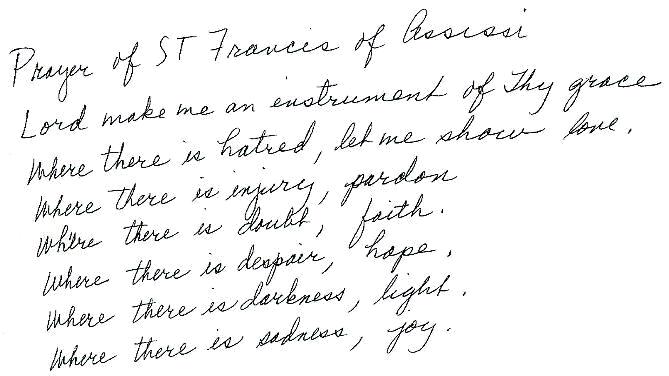 Prayer of ST Francis of Assissi
Lord make me an enstrument of Thy grace
Where there is hatred, let me show love.
Where there is injury, pardon
Where there is doubt, faith.
Where there is despair, hope.
Where there is darkness, light.
Where there is sadness, joy.